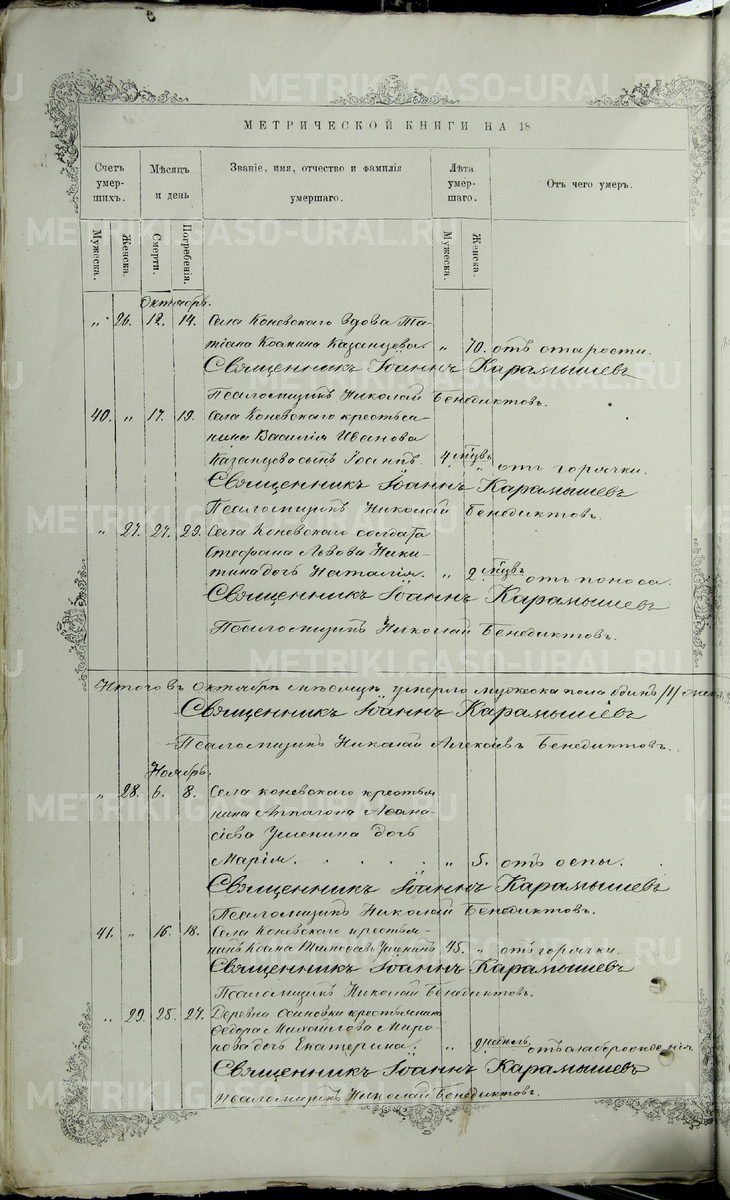 МЕТРИЧЕСКОЙ КНИГИ НА 18
Счетъ умер-шихъ. Мѣсяцъ и день Званіе, имя, отчество и фамилія умершаго. Лѣта умер-шаго. Отъ чего умеръ.
Мужеска. Женска. Смерти. Погребенія. Мужеска. Женска.
Октябрь.
" 26. 12. 14. Села Коневскаго вдова Та-
тіана Казанцева " 70. отъ старости.
Священникъ Іоаннъ Карамышевъ
Псаломщикъ Николай Бенедиктовъ.
40. " 17. 19. Села Коневскаго крестья-
нина Василія Иванова
Казанцева сынъ Іоаннъ. 4 мѣс. " отъ горячки.
Священникъ Іоаннъ Карамышевъ
Псаломщикъ Николай Бенедиктовъ.
" 27. 27. 29. Села Коневскаго солдата
Стефана Львова Ники-
тина дочь Наталія. " 2 мѣс. отъ поноса.
Священникъ Іоаннъ Карамышевъ
Псаломщикъ Николай Бенедиктовъ.
Итого въ Октябрѣ мѣсяцѣ умерло мужеска пола одинъ /1/
Священникъ Іоаннъ Карамышевъ
Псаломщикъ Николай Алексіевъ Бенедиктовъ.
Ноябрь.
" 28. 6. 8. Села Коневскаго крестья-
нина Аѳана-
сіева Ушенина дочь
Марія. " 5. отъ оспы.
Священникъ Іоаннъ Карамышевъ
Псаломщикъ Николай Бенедиктовъ.
41. " 16. 18. Села Коневскаго крестья-
нинъ Ушенинъ 45. " отъ горячки.
Священникъ Іоаннъ Карамышевъ
Псаломщикъ Николай Бенедиктовъ.
" 29. 25. 27. Деревни Осиновки крестьянина
Ѳедора Михайлова Миро-
нова дочь Екатерина. " 2 недѣль отъ слаборожденія
Священникъ Іоаннъ Карамышевъ
Псаломщикъ Николай Бенедиктовъ.
METRIKI.GASO-URAL.RU